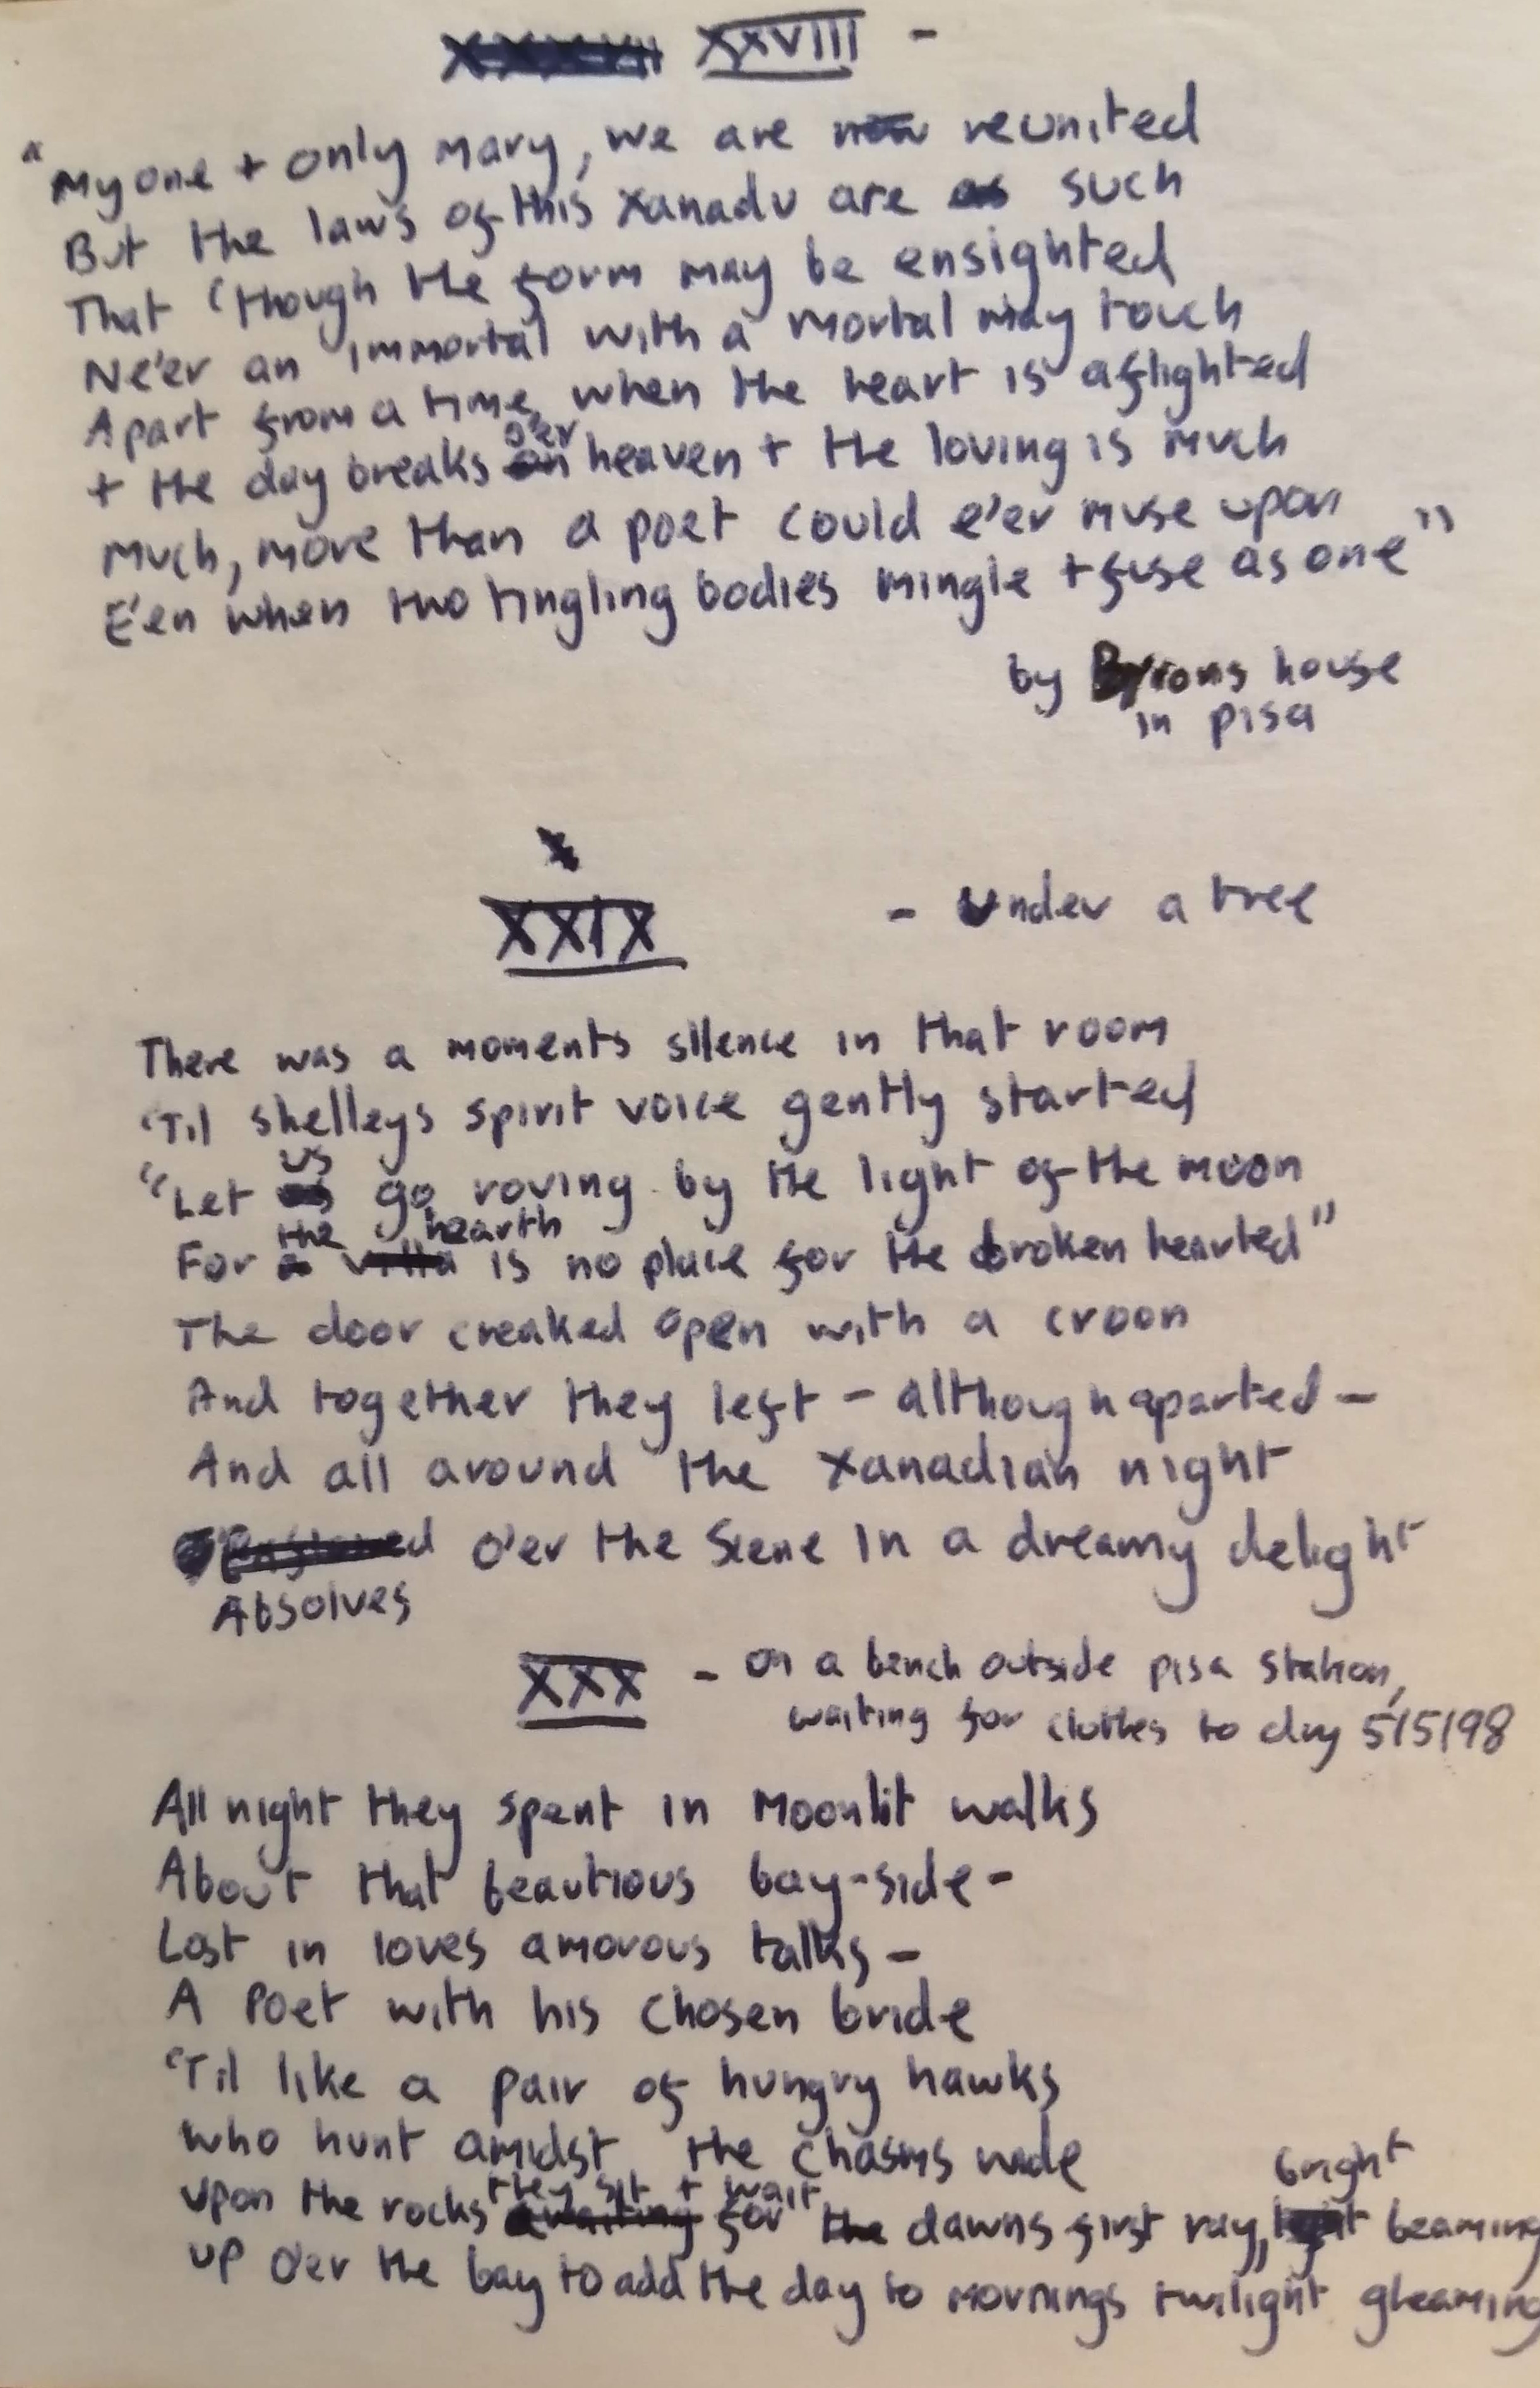 XXVIII -
"My one + only mary, we are now reunited
But the laws of this Xanadu are as such
That 'though the form may be ensighted
Ne'er an immortal with a mortal may touch
Apart from a time, when the heart is aflighted
+ the day breaks o'er heaven + the loving is much
Much, more than a poet could e'er muse upon
E'en when two tingling bodies mingle + fuse as one"
by Byrons house
in pisa
XXIX - Under a tree
There was a moments silence in that room
'Til shelleys spirit voice gently started
"Let us go roving by the light of the moon
For the hearth is no place for the broken hearted"
The door creaked open with a croon
And together they left - although aparted -
And all around the Xanadian night
Absolves o'er the scene in a dreamy delight
XXX - on a bench outside pisa station,
waiting for clothes to dry 5/5/98
All night they spent in Moonlit walks
About that beautious bay-side -
Lost in loves amorous talks -
A Poet with his chosen bride
'Til like a pair of hungry hawks
who hunt amidst the chasms wide
upon the rocks they sit + wait for dawns first ray, bright beaming
up o'er the bay to add the day to mornings twilight gleaming